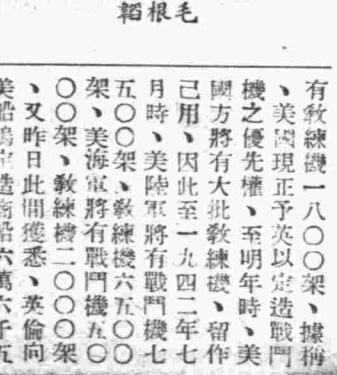 毛根韜
有敎練機一八〇〇架、據稱
、美國現正予英以定造戰鬥
機之優先權、至明年時、美
國方將有大批敎練機、留作
己用、因此至一九四二年七
月時、美陸軍將有戰鬥機七
五〇〇架、敎練機六五〇〇
架、美海軍將有戰鬥機五〇
〇〇架、敎練機二〇〇〇架
、又昨日此間獲悉、英倫向
美船塢定造商船六萬六千五